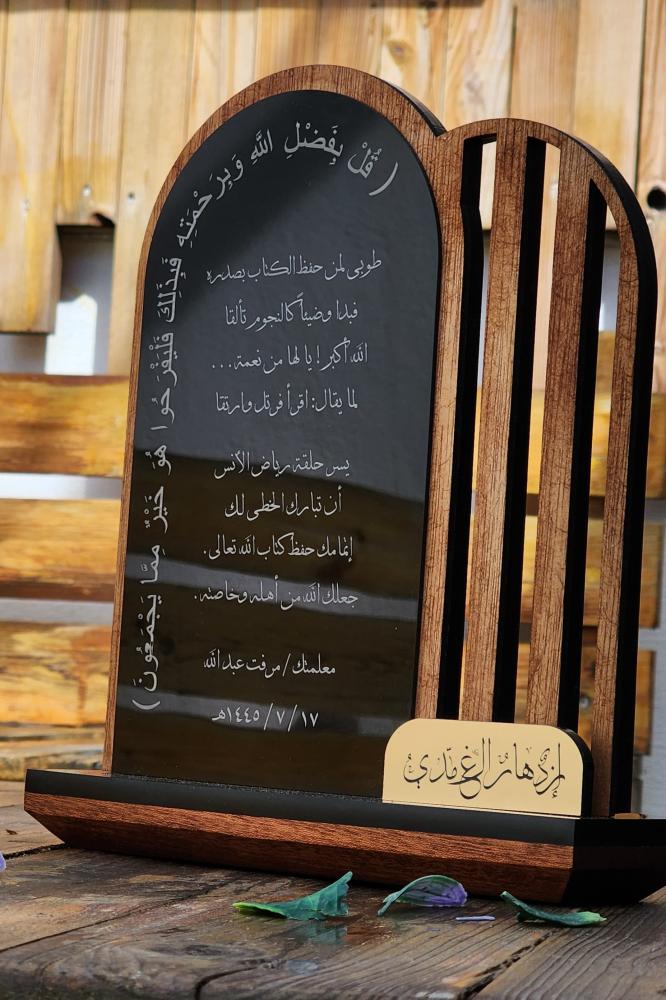 ( قُلْ بِفَضْلِ اللَّهِ وَبِرَحْمَتِهِ فَبِذَلِكَ فَلْيَفْرَحُوا هُوَ خَيْرٌ مِمَّا يَجْمَعُونَ )
طوبى لمن حفظ الكتاب بصدره
فبدا وضيئاً كالنجوم تألقا
الله أكبر ! يا لها من نعمة ...
لما يقال : اقرأ فرتل وارتقا
يسر حلقة رياض الأنس
أن تبارك الخطى لك
إتمامك حفظ كتاب الله تعالى .
جعلك الله من أهله وخاصته .
معلمتك / مرفت عبد الله
١٧ / ٧ / ١٤٤٥هـ
إزدهار الغامدي